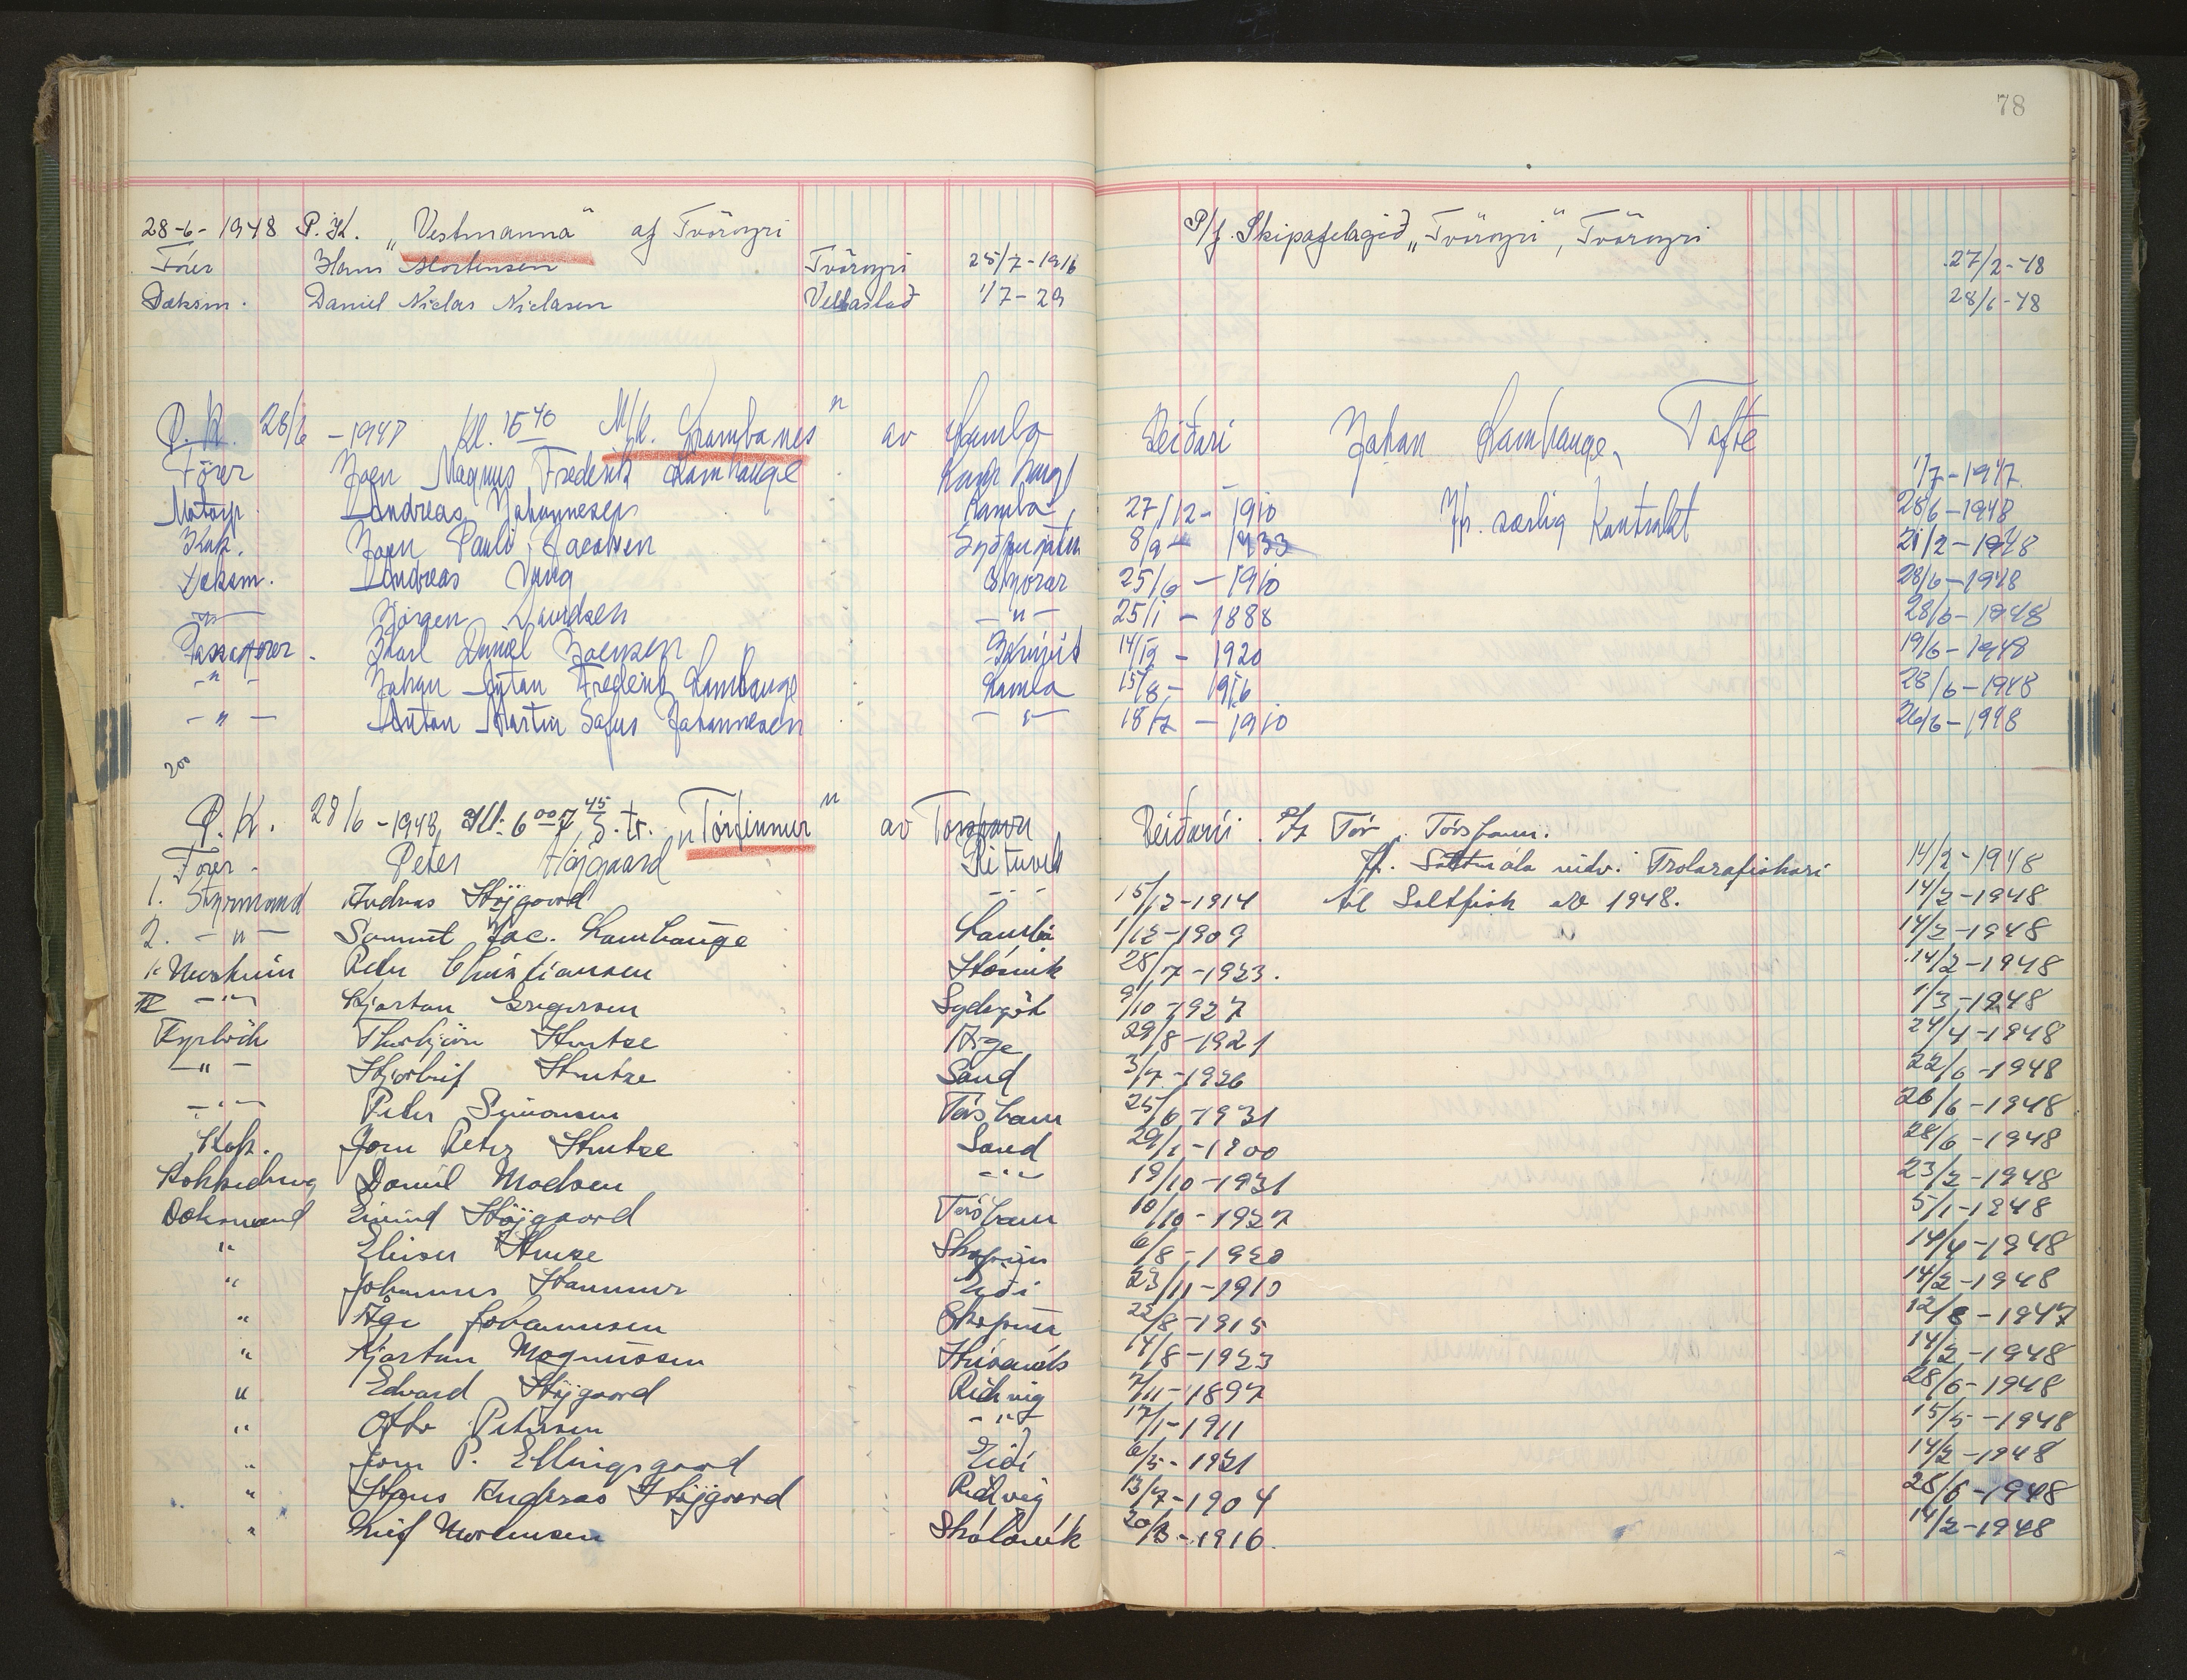 78
28-6-1948 P.K. „Vestmanna" af Tvöroyri P/f. Skipafelagið „Tvöroyri", Tvöroyri
Förer Hans Mortensen Tvöroyri 25/7-1916 27/2-48
Daksm. Daniel Niclas Niclasen 1/7-29 28/6-48
P.K. 28/6 -1947 Kl. 15 40 M/k. Grambanes" av Lamba Reiðari Johan Lamhauge, Tofte
Förer Joen Magnus Frederik Lamhauge 1/7-1947
Motorp. Andreas Johannesen Lamba 27/12-1910 Jfr. særlig Kontrakt 28/6-1948
Kok. Joen Pauli Jacobsen 8/9- 1933 21/2-1948
Daksm. Andreas 25/6-1910 28/6-1948
-"- Jörgen Davidsen -"- 25/1-1888 28/6-1948
Karl Daniel Joensen 1920 19/6-1948
-"- Johan Frederik Lamhauge Lamba 15/8-1916 28/6-1948
-"- Anton Martin Sofus Johannesen -"- 18/7-1910 26/6-1948
200
P.K. 28/6-1948, Kl. 6 00 7 45 S.tr. „Torfinnur" av Torshavn Reiðarii P/f Tór, Tórshavn.
Förer. Peter Højgaard Rituvik jfr. Sáttmála viðv. Trolarafiskari 14/2-1948
1. Styrmand Andreas Højgaard -"- 15/12-1914 til Saltfisk 1948. 14/2-1948
2. -"- Sammal Jac. Lamhauge Lamba 1/12-1909 14/2-1948
1. Meskin Peter Christiansen Hósvik 28/7-1923. 14/2-1948
II -"- Kjartan Gregersen 9/10-1927 1/3-1948
Fyrböt. Thorbjörn Hentze Arge 29/8-1921 24/4-1948
-"- Hjørleif Hentze Sand 3/7-1926 22/6-1948
-"- Peter Simonsen Tórshavn 25/6-1931 26/6-1948
Kok. Joen Peter Hentze Sand 28/6-1948
Kokkedreng Daniel Madsen -"- 19/10-1931 23/2-1948
Daksmand Eivind Højgaard Tórshavn 10/10-1927 5/1-1948
" Elieser Hentze Skopun 6/8-1920 14/4-1948
" Johannes Hammer Eiði 23/11-1910 14/2-1948
" Åge Johannesen Skopun 22/8-1915 12/8-1947
" Kjartan Magnussen Húsavik 14/8-1923 14/2-1948
" Edvard Højgaard Ritvig 7/11-1897 28/6-1948
" Otto Petersen -"- 17/1-1911 15/5-1948
" Joen P. Ellingsgaard Eiði 6/5-1921 14/2-1948
" Hans Andreas Højgaard Ritvig 13/7-1904 28/6-1948
" Leif Mortensen Skálavik 20/3-1916. 14/2-1948